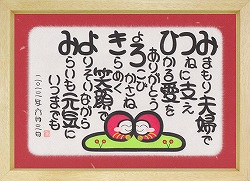 みまもり夫婦で
つねに支え
ひかる愛を
ありがとう
よろこびかさね
きらめく
笑顔で
よりそいながら
みらいも元気に
いつまでも